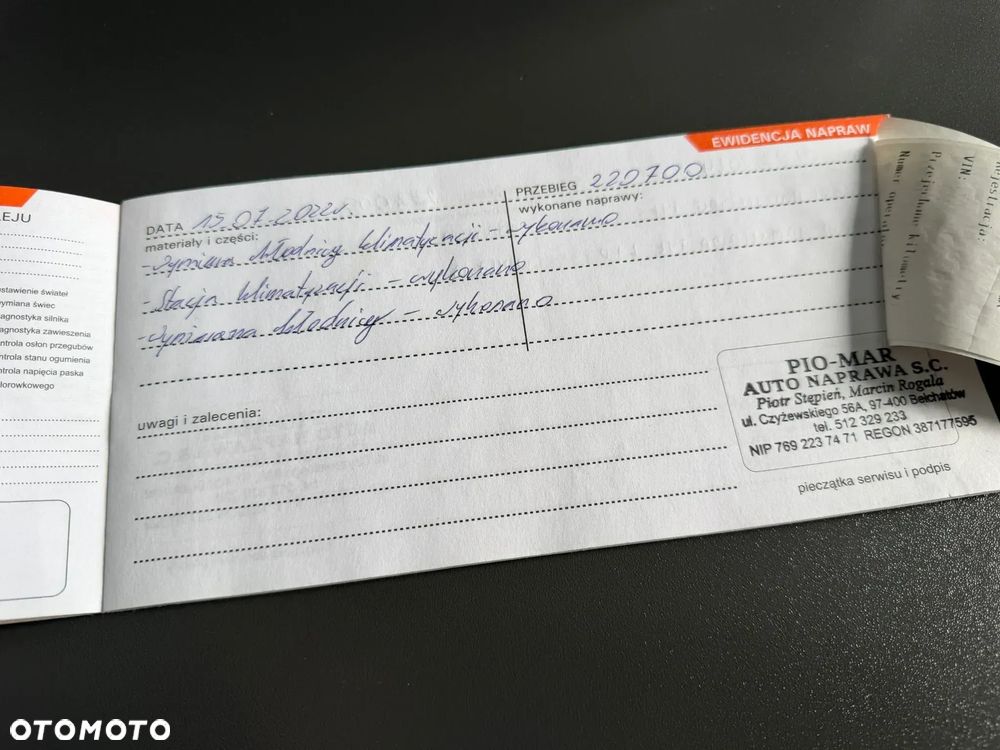 EWIDENCJA NAPRAW
DATA 15.07.2022r.
PRZEBIEG 220700
materiały i części:
wykonane naprawy:
- Wymiana chłodnicy klimatyzacji - wykonano
- Stacja klimatyzacji - wykonano
- Wymiana chłodnicy - wykonano
uwagi i zalecenia:
PIO-MAR
AUTO NAPRAWA S.C.
Piotr Stępień, Marcin Rogala
ul. Czyżewskiego 56A, 97-400 Bełchatów
tel. 512 329 233
NIP 769 223 74 71 REGON 387177595
pieczątka serwisu i podpis
LEJU
ustawienie świateł
wymiana świec
diagnostyka silnika
diagnostyka zawieszenia
kontrola osłon przegubów
kontrola stanu ogumienia
kontrola napięcia paska
klorowkowego
rejestracja:
VIN:
Przejechane kilometry
Numer
OTOMOTO